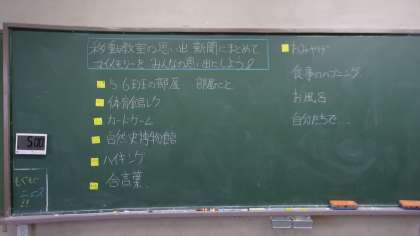 移動教室の思い出 新聞にまとめて
マイメモリーを みんなの思い出にしよう
56班の部屋 部屋のこと
体育館レク
カードゲーム
自然史博物館
ハイキング
合言葉
おみやげ
食事のハプニング
お風呂
自分たちで…
500